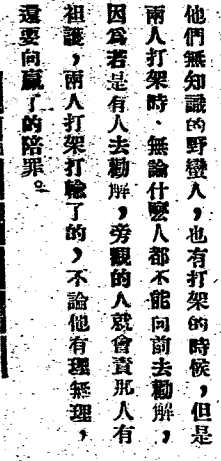 他們無知識的野蠻人，也有打架的時候，但是
兩人打架時、無論什麼人都不能向前去勸解，
因爲若是有人去勸解，旁觀的人就會責那人有
袒護，兩人打架打輸了的，不論他有理無理，
還要向贏了的陪罪。